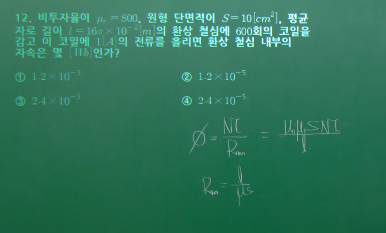 12. 비투자율이 μᵣ = 800, 원형 단면적이 S = 10[cm²], 평균
자로 길이 l = 16π × 10⁻²[m]의 환상 철심에 600회의 코일을
감고 이 코일에 1[A]의 전류를 흘리면 환상 철심 내부의
자속은 몇 [Wb]인가?
① 1·2×10⁻³ ② 1·2×10⁻⁵
③ 2·4×10⁻³ ④ 2·4×10⁻⁵
∅ = NI/Rm = μ₀μₛSNI/l
Rm = l/μs